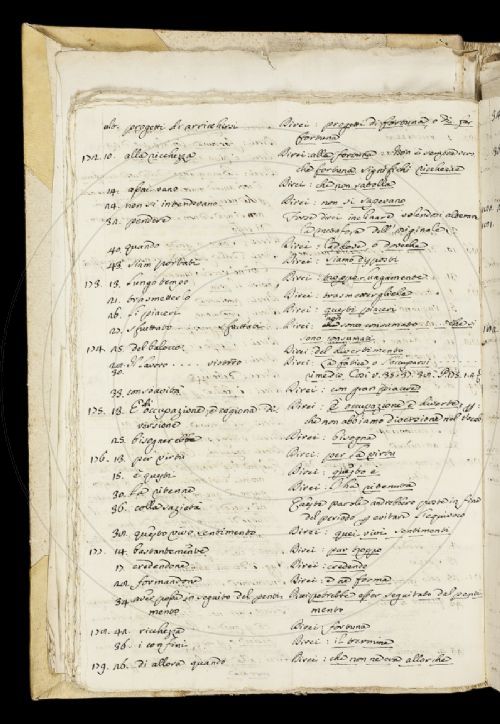 ult. progetti di arricchirsi Direi: progetti di fortuna o di far
fortuna
172. 10. alla ricchezza Direi: alla fortuna. Non è sempre vero
che fortuna significhi ricchezza
14. assai vano Direi: che non sa bella
24. non si intendevano Direi: non si sapevano
32. pendere Forse direi inclinare volendosi
la metafora dell'originale
40. quando Direi: laddove o dovecchè
48. siam portati Direi: siamo disposti
173. 18. lungo tempo Direi: lungamente
21. trasmetterlo Direi: trasmetterglielo
26. si piaceri Direi: questi piaceri
27. sfruttati Direi: non sono consumati
sono consumati
174. 25. del balocco Direi del divertimento
Il lavoro .... vietando Direi: la fatica o l'occuparsi
30. rimedio. Così v. 35. 37.
38. con soavità Direi: con gran piacere
175. 18. E' occupazione, e cagione di Direi: È occupazione e diverte
versione che non abbiamo diversione nel
25. bisognerebbe Direi: bisogna
176. 13. per virtù Direi: per la virtù
15. e questi Direi: questo è
30. la ritenne Direi: l'ha ritenuta
36. colla sazietà Queste parole andrebbero poste in fine
del periodo per evitare l'equivoco
38. questo vivo sentimento Direi: quei vivi sentimenti
177. 14. bastantemente Direi: pur troppo
17 credendone Direi: credendo
22. formandone Direi: e ne forma
34. aver posto in seguito del penti- Direi potrebbe esser seguitato del penti-
mento mento
178. 42. ricchezza Direi: fortuna
36. i confini Direi: il termine
179. 26. di allora quando Direi: che non ne era allorchè